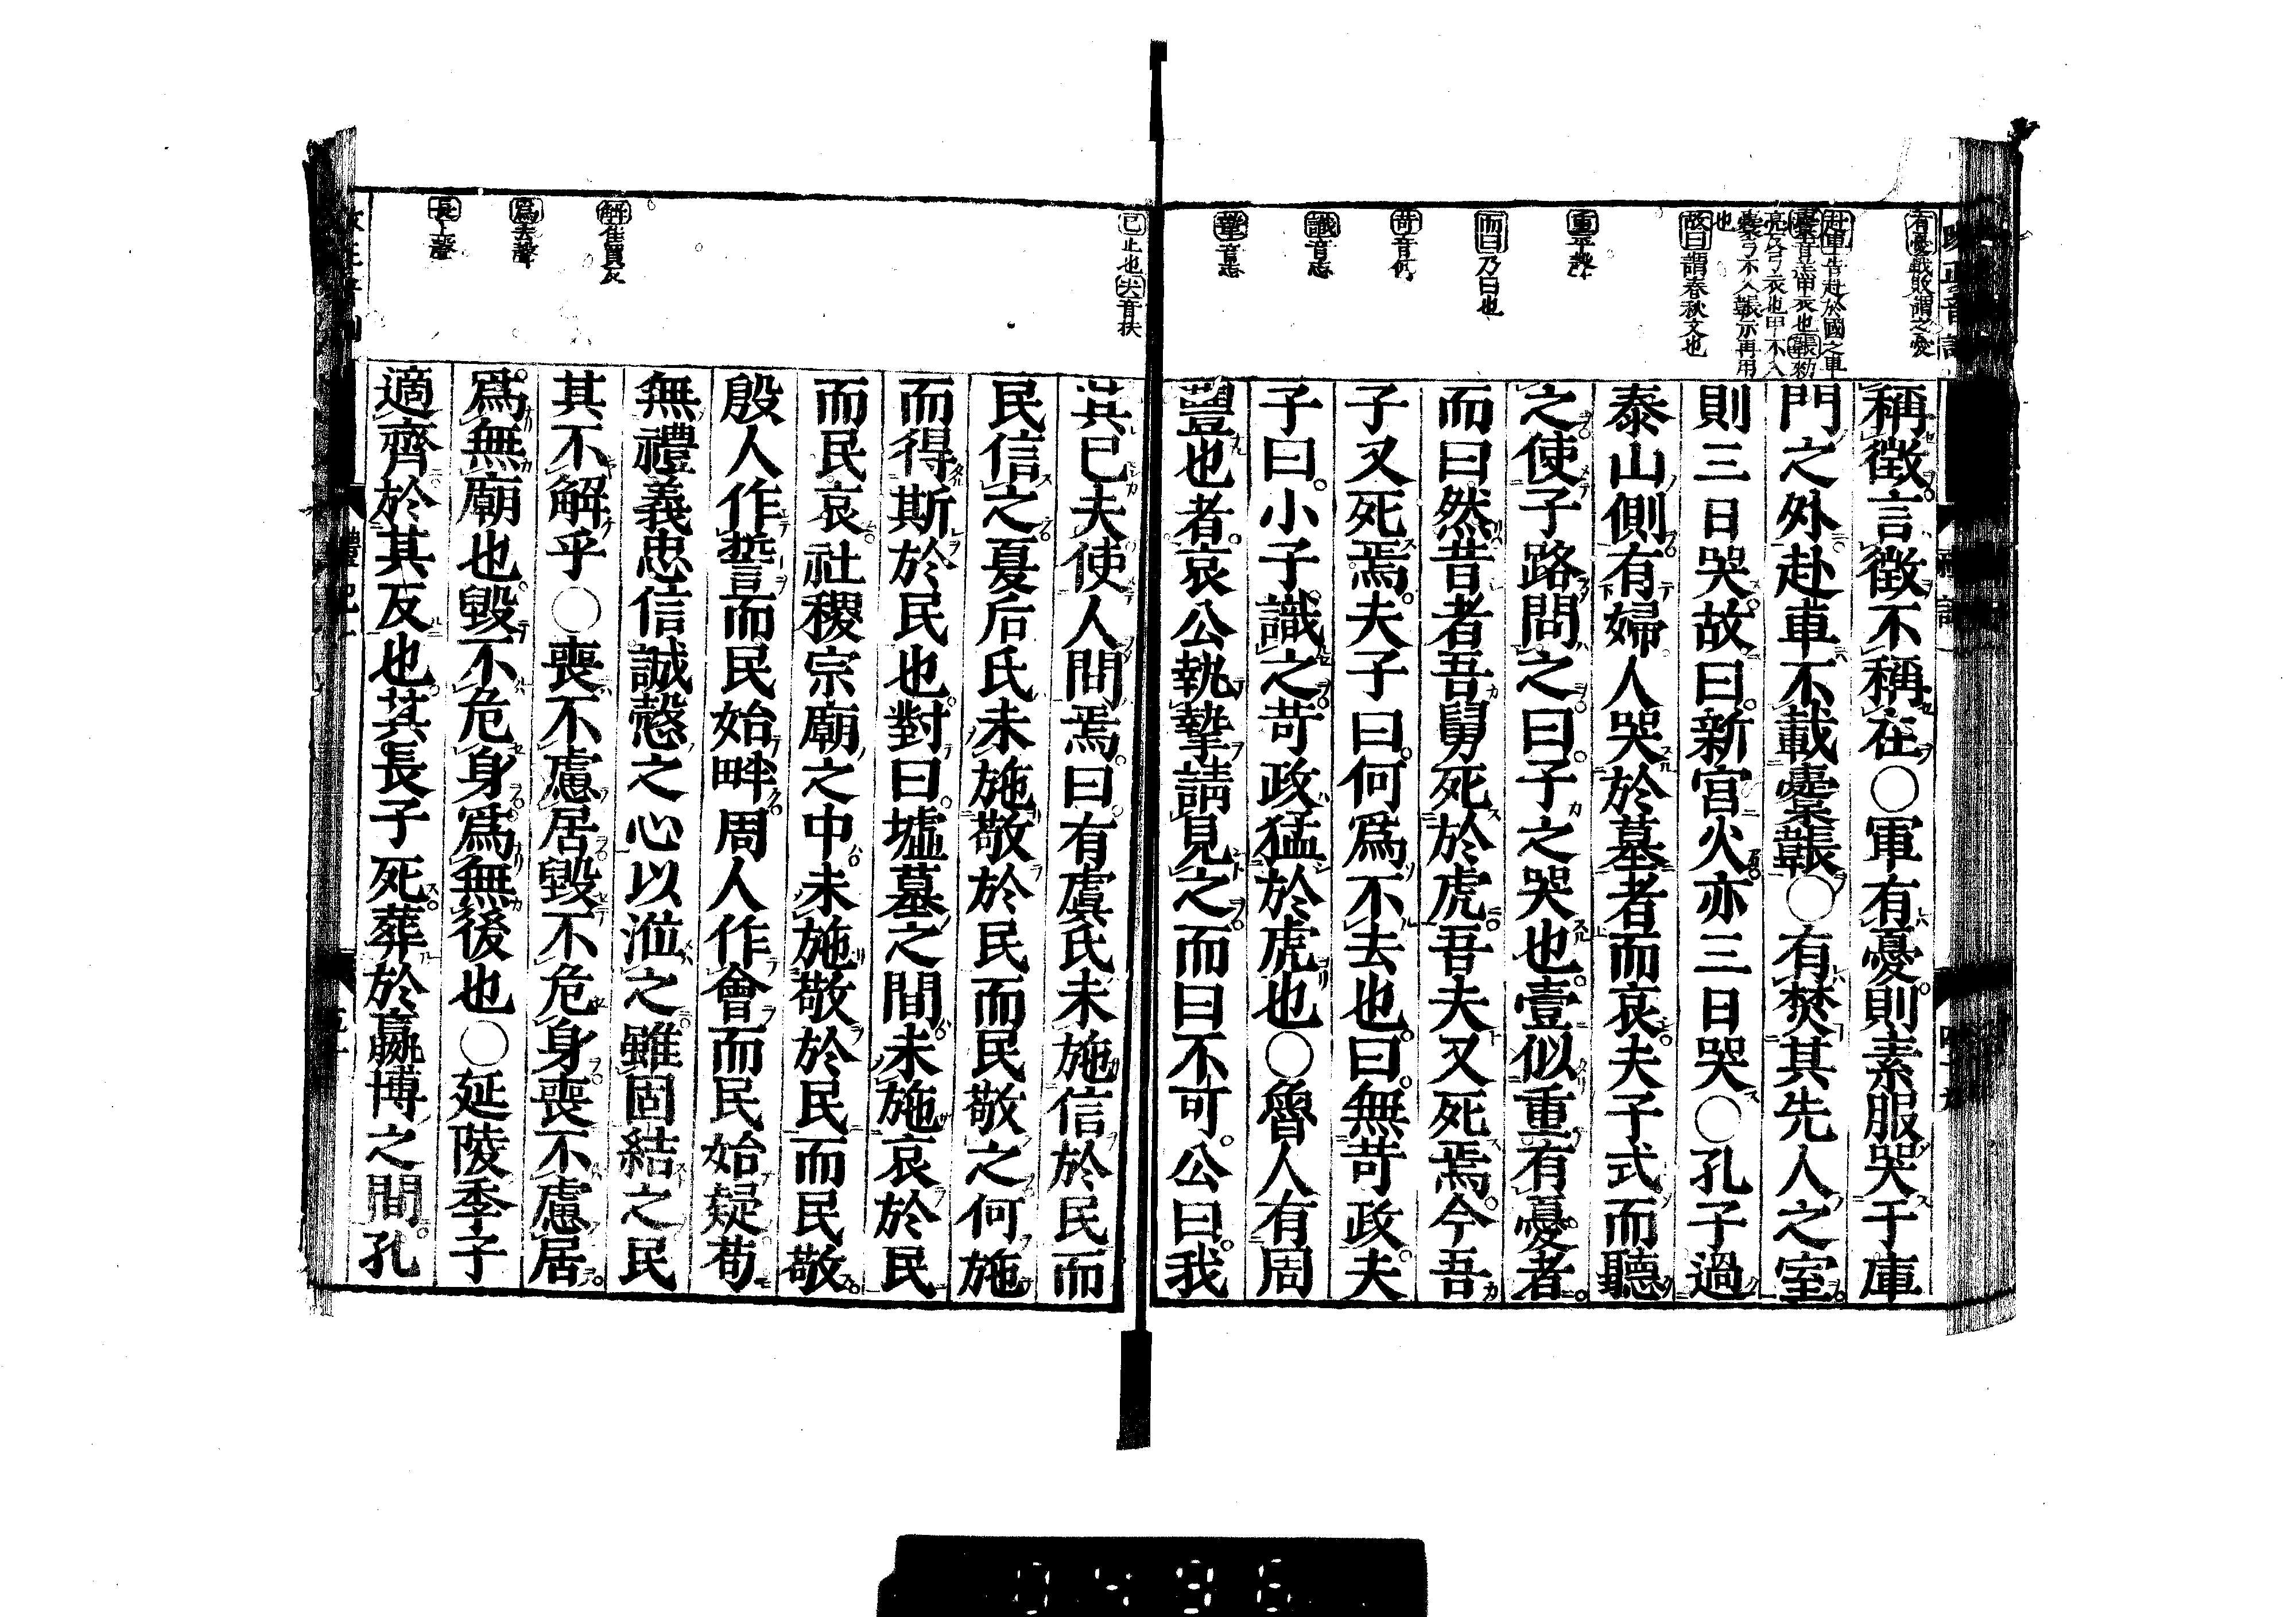 稱徴言徴不稱在○軍有憂則素服哭于庫
門之外赴車不載櫜韔○有焚其先人之室
則三日哭故曰新宮火亦三日哭○孔子過
泰山側有婦人哭於墓者而哀夫子式而聽
之使子路問之曰子之哭也壹似重有憂者
而曰然昔者吾舅死於虎吾夫又死焉今吾
子又死焉夫子曰何爲不去也曰無苛政夫
子曰小子識之苛政猛於虎也○魯人有周
豐也者哀公執摯請見之而曰不可公曰我
其已夫使人問焉曰有虞氏未施信於民而
民信之夏后氏未施敬於民而民敬之何施
而得斯於民也對曰墟墓之間未施哀於民
而民哀社稷宗廟之中未施敬於民而民敬
殷人作誓而民始畔周人作會而民始疑苟
無禮義忠信誠慤之心以涖之雖固結之民
其不解乎○喪不慮居毀不危身喪不慮居
爲無廟也毀不危身爲無後也○延陵季子
適齊於其反也其長子死葬於嬴博之間孔
有憂戰敗謂之憂
赴車告赴於國之車
櫜音羔甲衣也韔
亮反弓衣也甲不入
櫜弓不入韔示再用
也
故曰謂春秋文也
重平聲
而曰乃曰也
苛音何
識音志
摯音志
已止也夫音扶
解佳買反
爲去聲
長上聲
禮記一